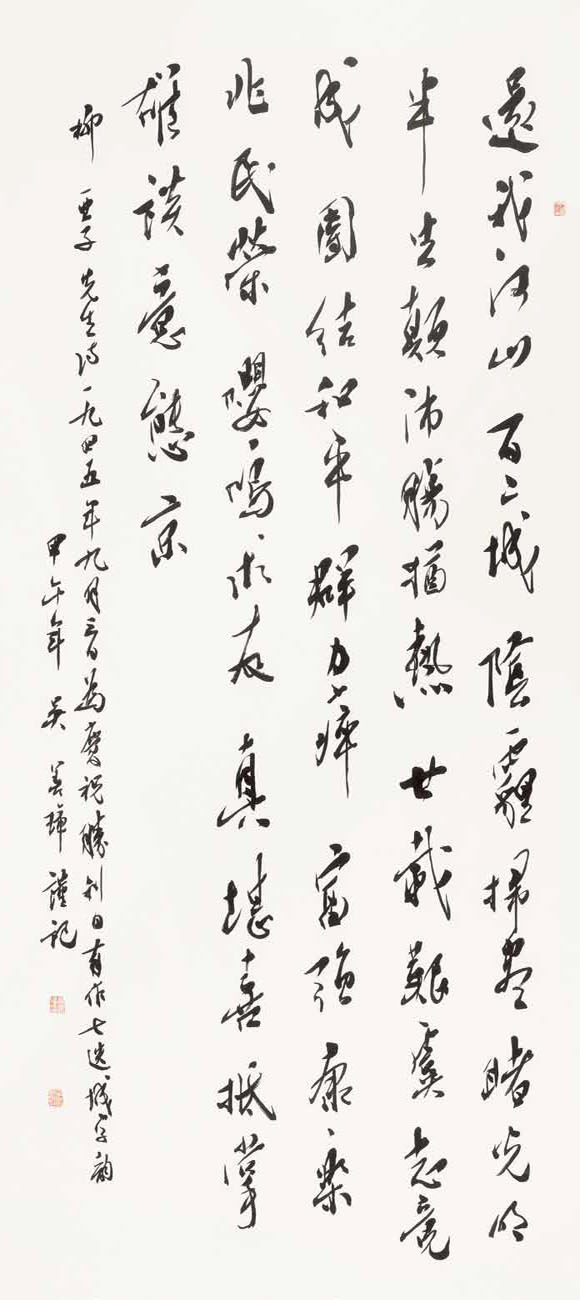 還我河山百二城陰霾掃盡睹光明
半生顛沛腸猶熱廿載艱虞志竟
成團結和平群力瘁富強康樂
兆民榮嚶鳴求友真堪喜抵掌
雄談意態京
柳亞子先生詩一九四五年九月三日為慶祝勝利日有作七迭城字韻
甲午年吴善璋謹記